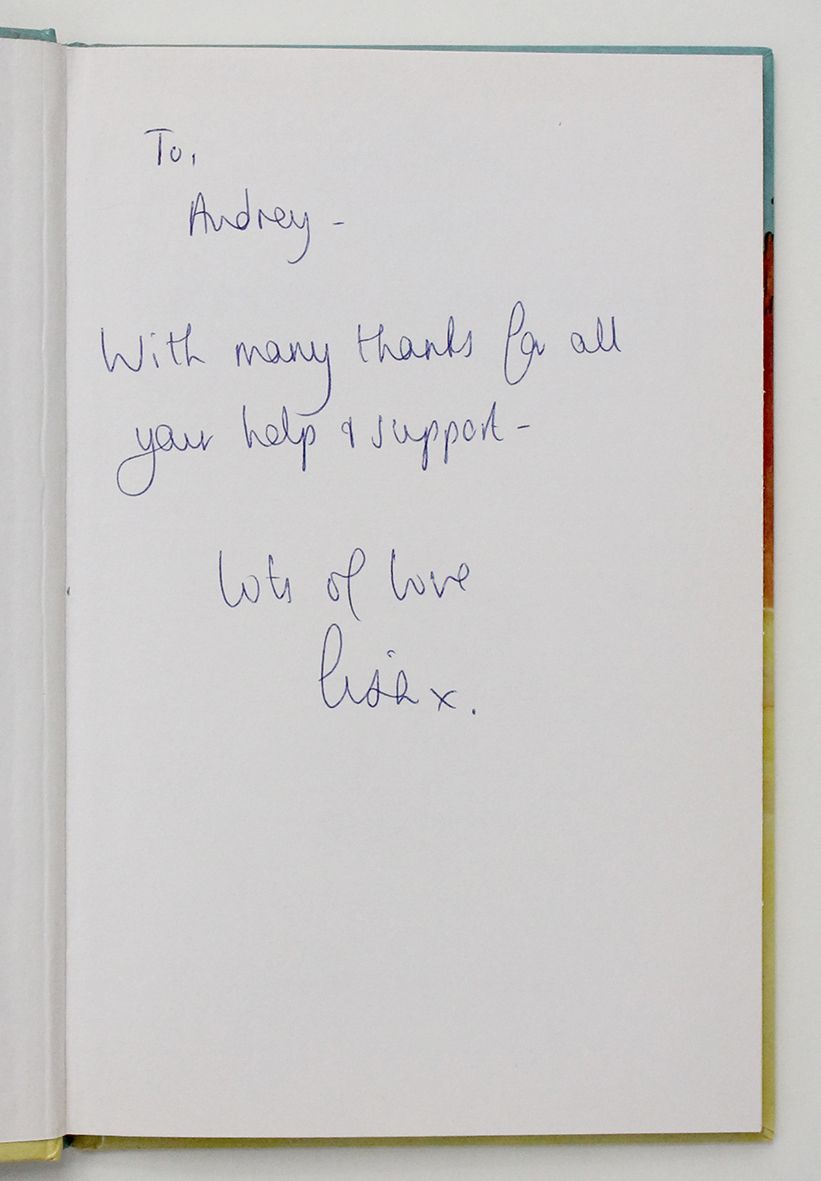 To,
Audrey -
With many thanks for all
your help & support -
Lots of love
Lisa x.